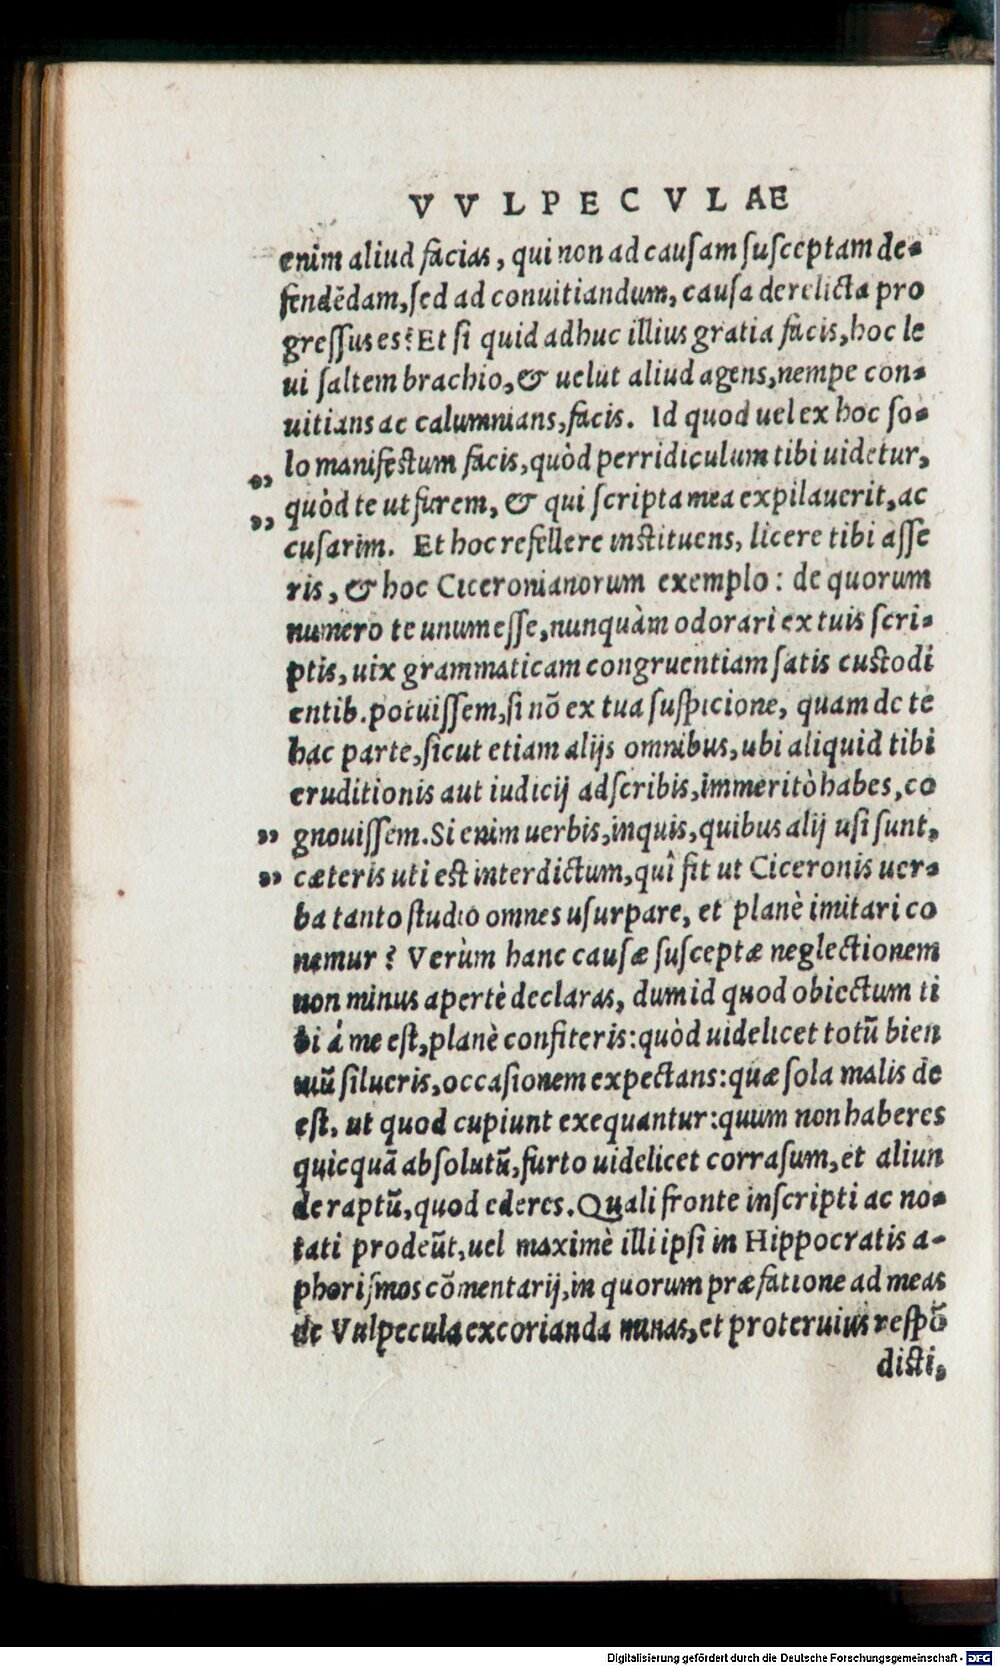 VVLPECVLAE
enim aliud facias, qui non ad causam susceptam de-
fendēdam, sed ad conuitiandum, causa derelicta pro
gressus es? Et si quid adhuc illius gratia facis, hoc le
ui saltem brachio, & uelut aliud agens, nempe con-
uitians ac calumnians, facis. Id quod uel ex hoc so-
lo manifestum facis, quòd perridiculum tibi uidetur,
„ quòd te ut furem, & qui scripta mea expilauerit, ac
„ cusarim. Et hoc refellere instituens, licere tibi asse
ris, & hoc Ciceronianorum exemplo: de quorum
numero te unum esse, nunquàm odorari ex tuis scri-
ptis, uix grammaticam congruentiam satis custodi
entib. potuissem, si nō ex tua suspicione, quam de te
hac parte, sicut etiam alijs omnibus, ubi aliquid tibi
eruditionis aut iudicij adscribis, immeritò habes, co
„ gnouissem. Si enim uerbis, inquis, quibus alij usi sunt,
„ cæteris uti est interdictum, quî fit ut Ciceronis uer-
ba tanto studio omnes usurpare, et planè imitari co
nemur? Verùm hanc causæ susceptæ neglectionem
non minus apertè declaras, dum id quod obiectum ti
bi á me est, planè confiteris: quòd uidelicet totū bien
niū silueris, occasionem expectans: quæ sola malis de
est, ut quod cupiunt exequantur: quum non haberes
quicquā absolutū, furto uidelicet corrasum, et aliun
de raptū, quod ederes. Quali fronte inscripti ac no-
tati prodeūt, uel maximè illi ipsi in Hippocratis a-
phorismos cōmentarij, in quorum præfatione ad meas
de Vulpecula excorianda minas, et proteruius respō
disti,
Digitalisierung gefördert durch die Deutsche Forschungsgemeinschaft - DFG